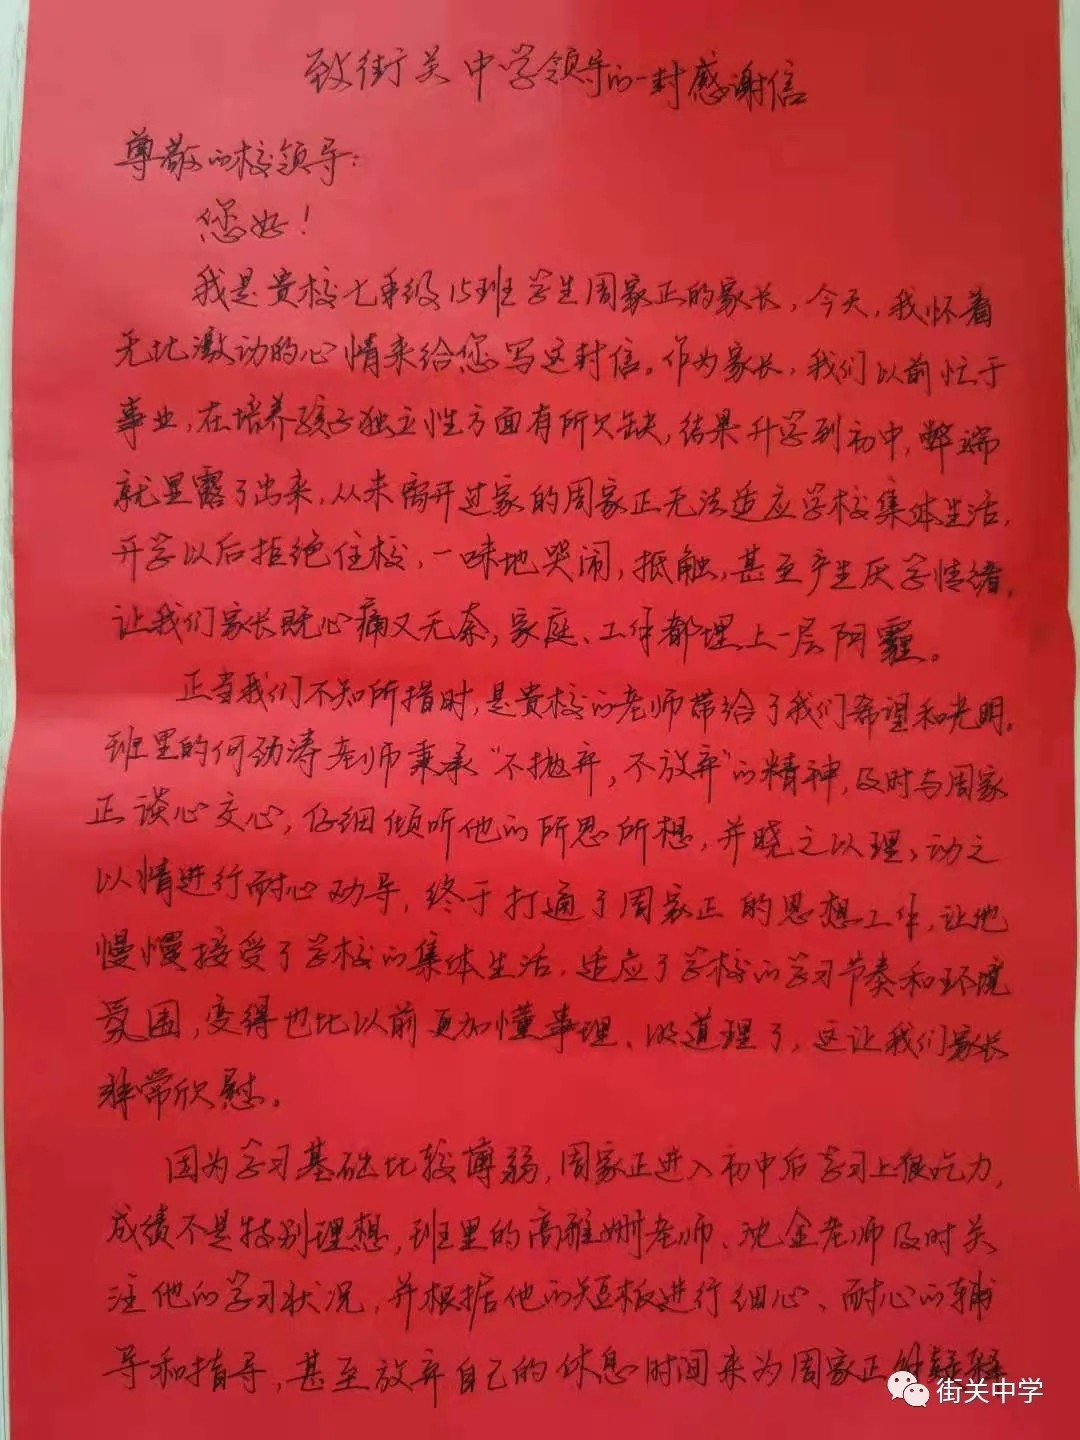 致街关中学领导的一封感谢信
尊敬的校领导：
您好！
我是贵校七年级15班学生周家正的家长，今天，我怀着
无比激动的心情来给您写这封信。作为家长，我们以前忙于
事业，在培养孩子独立性方面有所欠缺，结果升学到初中，弊端
就显露了出来，从未离开过家的周家正无法适应学校集体生活，
开学以后拒绝住校，一味地哭闹，抵触，甚至产生厌学情绪，
让我们家长既心痛又无奈，家庭、工作都埋上一层阴霾。
正当我们不知所措时，是贵校的老师带给了我们希望和光明。
班里的何劲涛老师秉承“不抛弃，不放弃”的精神，及时与周家
正谈心交心，仔细倾听他的所思所想，并晓之以理、动之
以情进行耐心劝导，终于打通了周家正的思想工作，让他
慢慢接受了学校的集体生活，适应了学校的学习节奏和环境
氛围，变得也比以前更加懂事理、明道理了，这让我们家长
非常欣慰。
因为学习基础比较薄弱，周家正进入初中后学习上很吃力，
成绩不是特别理想，班里的高雅姗老师、沈金老师及时关
注他的学习状况，并根据他的短板进行细心、耐心的辅
导和指导，甚至放弃自己的休息时间来为周家正
街关中学